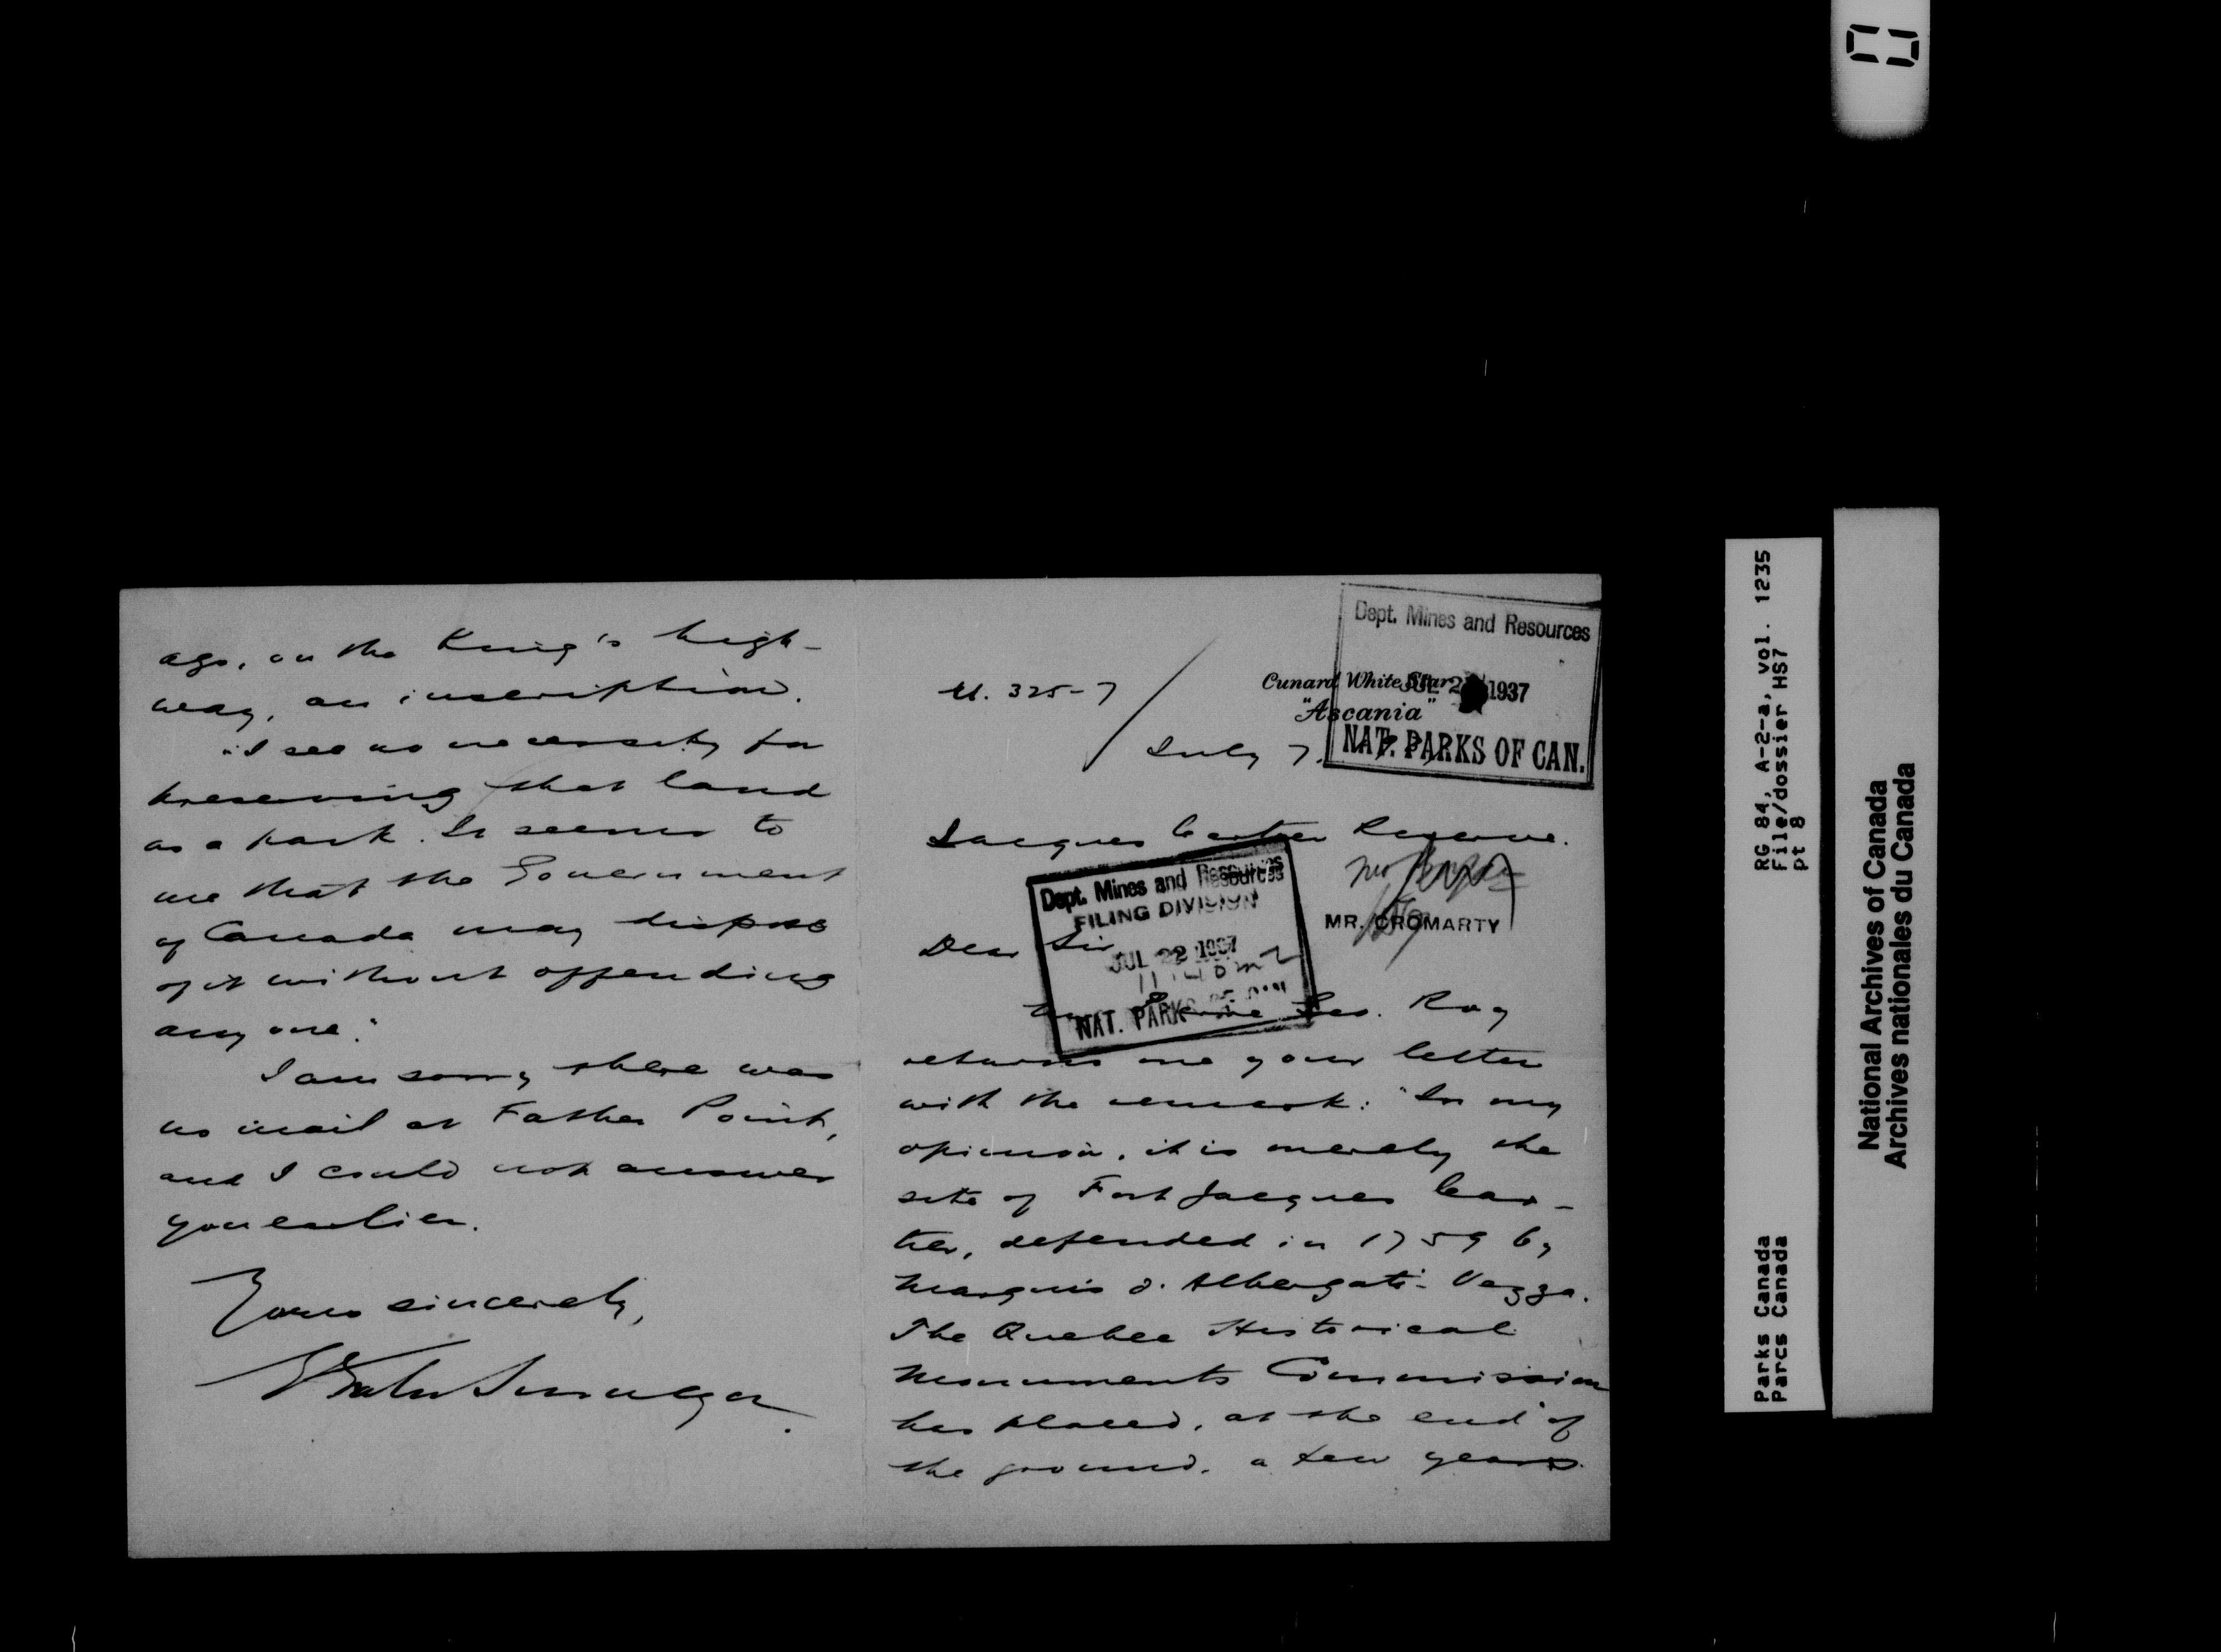 U. 325-7
Cunard White Star
"Ascania"
July 7.
Dept. Mines and Resources
JUL 2 1937
NAT. PARKS OF CAN.
Jacques Cartier Reserve.
MR. CROMARTY
Dept. Mines and Resources
FILING DIVISION
JUL 22 1937
NAT. PARKS OF CAN
Dear Sir,
Pierre Geo. Roy
returns me your letter
with the remark: "In my
opinion, it is merely the
site of Fort Jacques Car-
tier, defended in 1759 by
Marquis d'Albergati-Vezza.
The Quebec Historical
Monuments Commission
has placed, at the end of
the ground, a few years
ago, on the King's high-
way, an inscription.
"I see no necessity for
preserving that land
as a park. It seems to
me that the Government
of Canada may dispose
of it without offending
any one."
I am sorry there was
no mail at Father Point,
and I could not answer
you earlier.
Yours sincerely,
RG 84, A-2-a, vol. 1235
File/dossier HS7
pt 8
Parks Canada
Parcs Canada
National Archives of Canada
Archives nationales du Canada